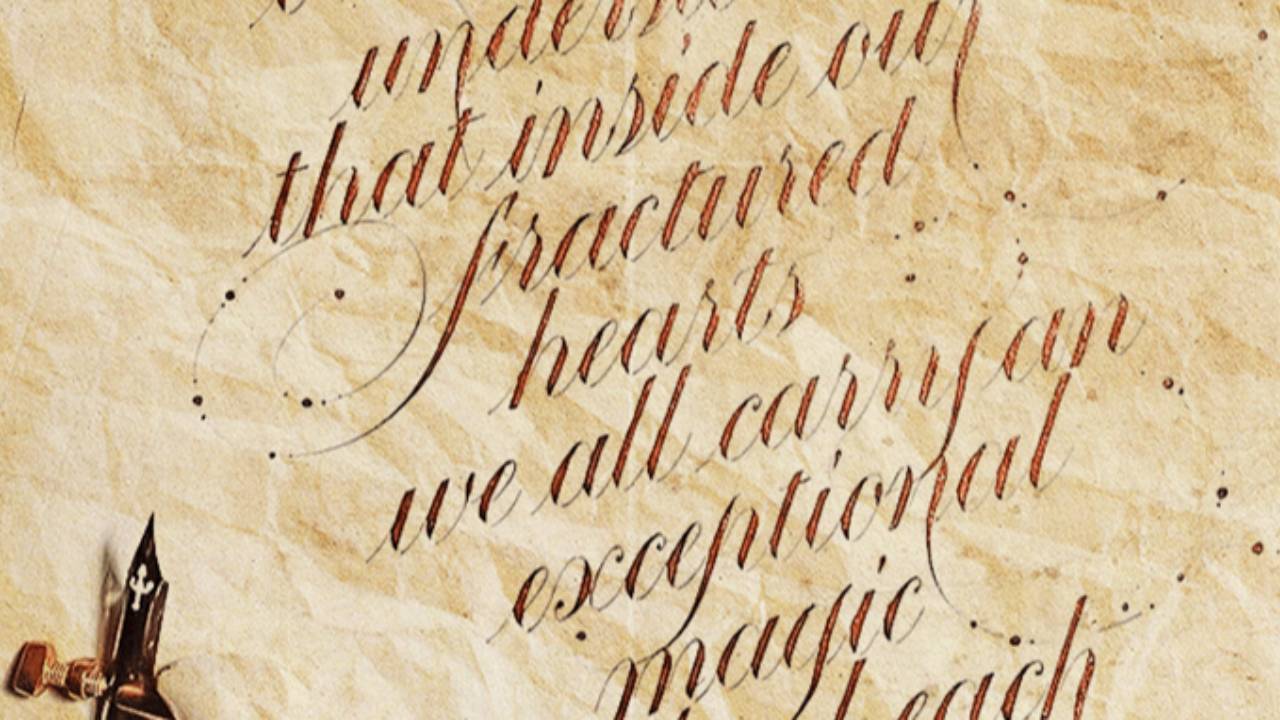 that inside our
fractured
hearts
we all carry an
exceptional
magic
each